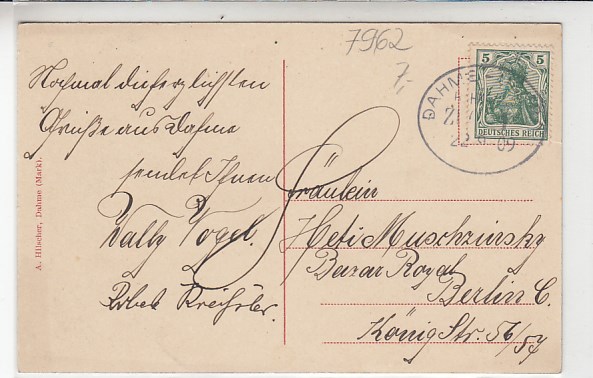 7962
7,-
Nochmal die herzlichsten
Grüße aus Dahme
sendet Ihnen
Wally Vogel.
A. Hilscher, Dahme (Mark).
5 5
DEUTSCHES REICH
DAHME
22 09
Fräulein
Heti Muschzinsky
Bazar Royal
Berlin C.
König Str. 56/57